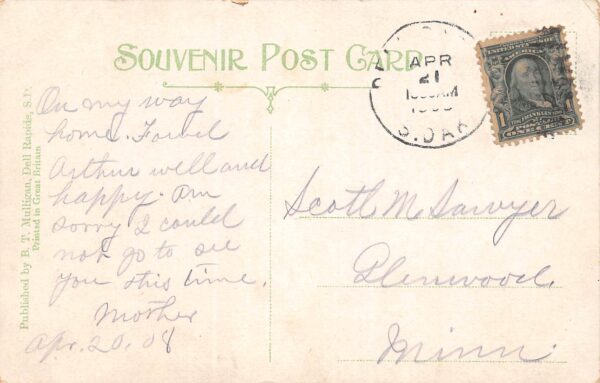 SOUVENIR POST CARD
Published by B. T. Mulligan, Dell Rapids, S.D.
Printed in Great Britain
On my way
home. Found
Arthur well and
happy. Am
sorry I could
not go to see
you this time.
Mother
Apr. 20, 08
APR
21
S. DAK
UNITED STATES OF
AMERICA
1 1
ONE CENT
Scott M. Sawyer
Glenwood,
Minn.